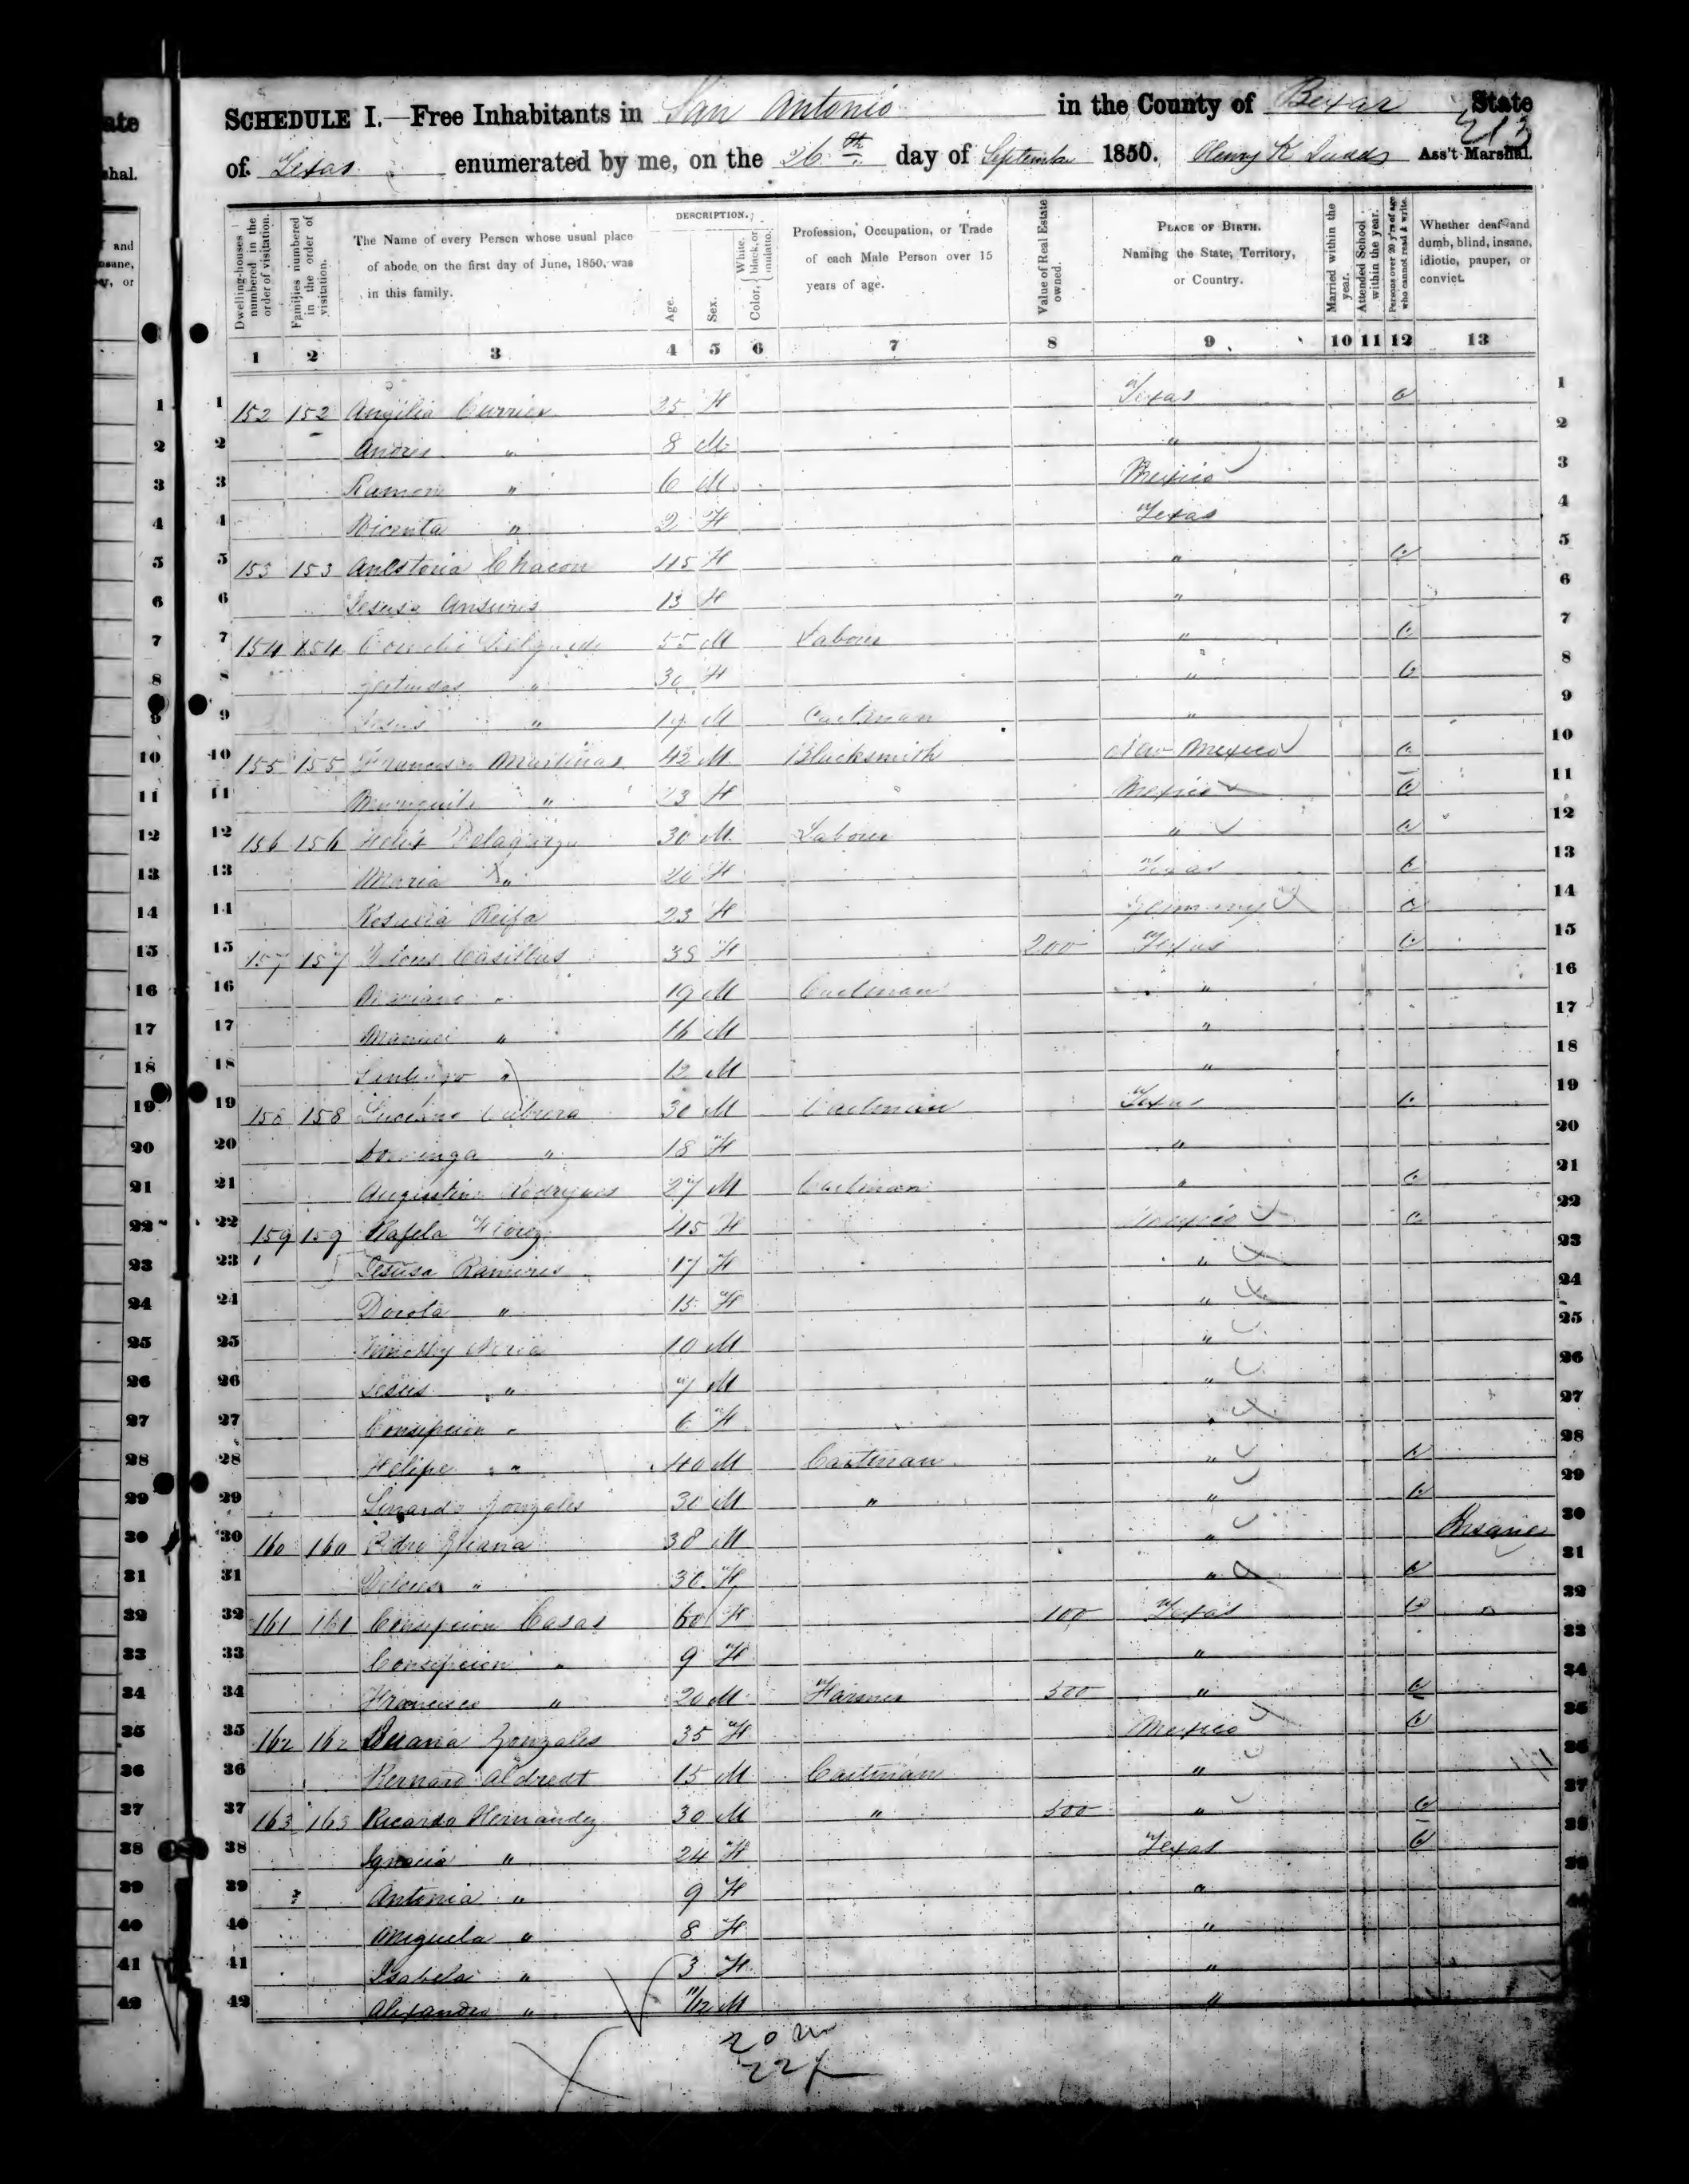 SCHEDULE I.—Free Inhabitants in San Antonio in the County of Bexar State
213
of Texas enumerated by me, on the 26th day of September 1850. Henry K Ass't Marshal.
Dwelling-houses numbered in the order of visitation.
Families numbered in the order of visitation.
The Name of every Person whose usual place of abode on the first day of June, 1850, was in this family.
DESCRIPTION.
Age.
Sex.
Color, White, black, or mulatto.
Profession, Occupation, or Trade of each Male Person over 15 years of age.
Value of Real Estate owned.
PLACE OF BIRTH. Naming the State, Territory, or Country.
Married within the year.
Attended School within the year.
Persons over 20 y'rs of age who cannot read & write.
Whether deaf and dumb, blind, insane, idiotic, pauper, or convict.
1 2 3 4 5 6 7 8 9 10 11 12 13
1 152 152 Angilia 25 F Texas 1
2 Andres " 8 M " 2
3 Ramon " 6 M Mexico 3
4 Vicenta " 2 F Texas 4
5 153 153 Chacon F " 5
6 Jesusa 13 F " 6
7 154 154 55 M Labour " 7
8 " 30 F " 8
9 Jesus " 19 M Cartman " 9
10 155 155 Francisco Martinas 42 M Blacksmith New Mexico 10
11 " 23 F Mexico 11
12 156 156 Felix Delagarza 30 M Labour " 12
13 Maria " 20 F Texas 13
14 Reifa 23 F Germany 14
15 157 157 Casillas F 200 Texas 15
16 Mariano " 19 M Cartman " 16
17 Manuel " 16 M " 17
18 Santiago " 12 M " 18
19 158 158 Luciano Cabrera 30 M Cartman Texas 19
20 Dominga " 18 F " 20
21 Augustine Rodrigues 27 M Cartman " 21
22 159 159 Rafela Florez 45 F Mexico 22
23 Jesusa Ramires 17 F " 23
24 Dorota " 15 F " 24
25 Timothy 10 M " 25
26 Jesus " 7 M " 26
27 Consepcion " 6 F " 27
28 Felipe " 40 M Cartman " 28
29 Linardo Gonzales 30 M " " 29
30 160 160 Pedro 38 M " Insane 30
31 Delores " 30 F " 31
32 161 161 Consepcion Casas 60 F 100 Texas 32
33 Consepcion " 9 F " 33
34 Francisco " 20 M Farmer 500 " 34
35 162 162 Gonzales 35 F Mexico 35
36 Bernard Aldredt 15 M Cartman " 36
37 163 163 Ricardo Hernandez 30 M " 500 " 37
38 Ignacia " 24 F Texas 38
39 Antonia " 9 F " 39
40 Miguela " 8 F " 40
41 Isabela " 3 F "
42 Alexandro " 11/12 M "
20 m
22 f